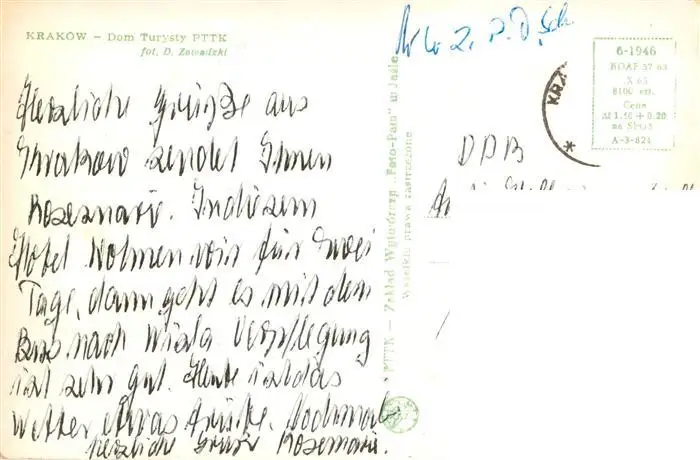 KRAKÓW – Dom Turysty PTTK
fot. D. Zawadzki
Herzliche Grüße aus
Krakow sendet Ihnen
Rosemarie. In diesem
Hotel wohnen wir für zwei
Tage, dann geht es mit dem
Bus nach Wisla Verpflegung
ist sehr gut. Heute ist das
Wetter etwas trübe. Nochmals
herzliche Grüße Rosemarie.
PTTK – Zakład Wytwórczy „Foto-Pam" w Jaśle
Wszelkie prawa zastrzeżone
6-1946
KOAF 37 63
X 63
8100 egz.
Cena
zł 1.80 + 0.20
na SFOS
A-3-824
KRA
DDR